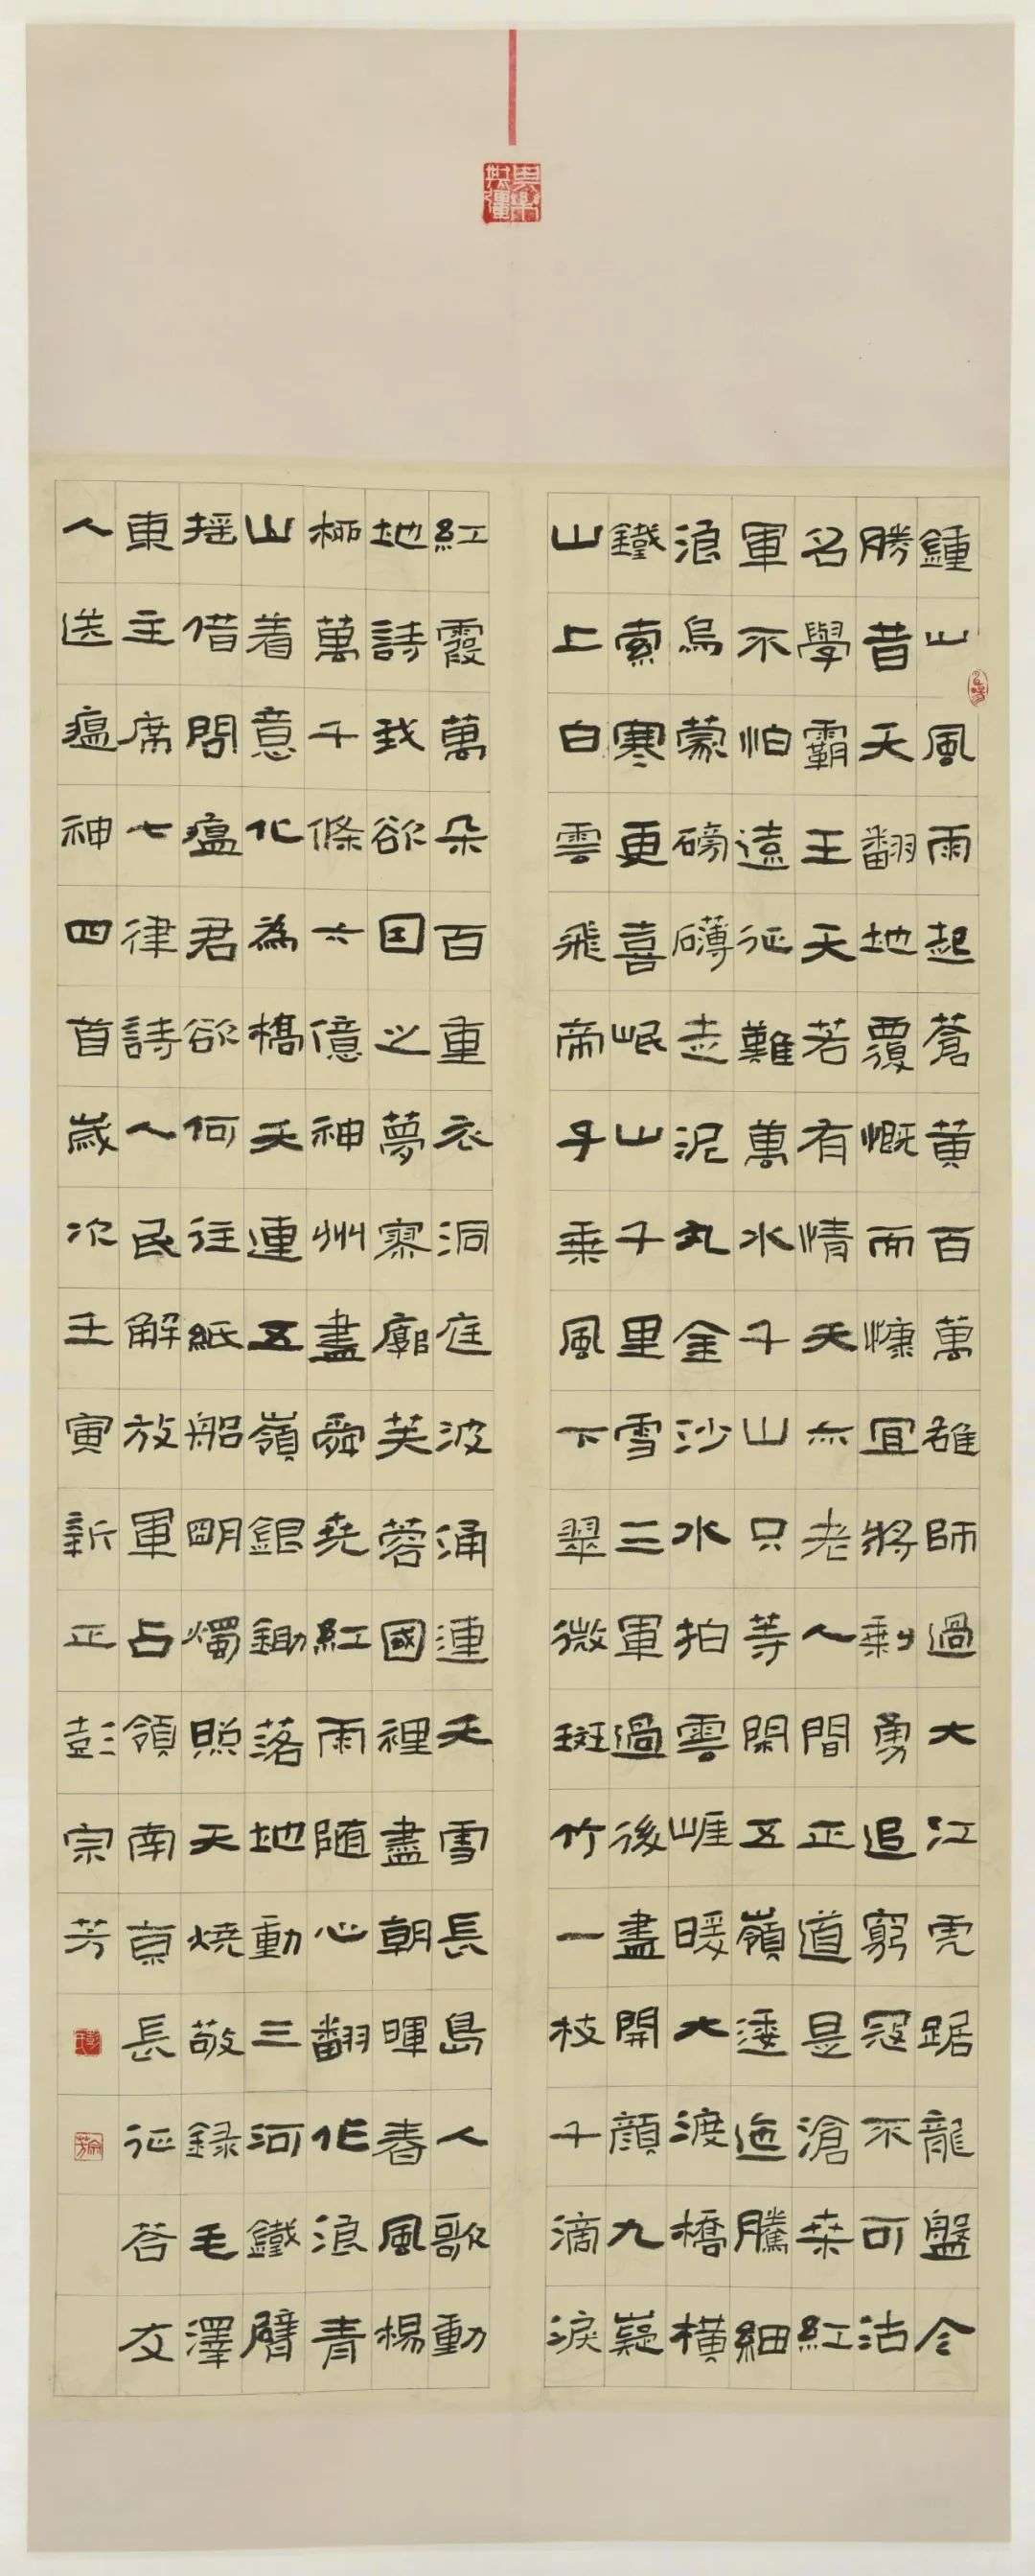 鍾山風雨起蒼黃百萬雄師過大江虎踞龍盤今
勝昔天翻地覆慨而慷宜將剩勇追窮寇不可沽
名學霸王天若有情天亦老人間正道是滄桑紅
軍不怕遠征難萬水千山只等閑五嶺逶迤騰細
浪烏蒙磅礴走泥丸金沙水拍雲崕暖大渡橋橫
鐵索寒更喜岷山千里雪三軍過後盡開顏九嶷
山上白雲飛帝子乘風下翠微斑竹一枝千滴淚
紅霞萬朵百重衣洞庭波涌連天雪長島人歌動
地詩我欲因之夢寥廓芙蓉國裡盡朝暉春風楊
柳萬千條六億神州盡舜堯紅雨随心翻作浪青
山着意化為橋天連五嶺銀鋤落地動三河鐵臂
摇借問瘟君欲何往紙船明燭照天燒敬録毛澤
東主席七律詩人民解放軍占領南京長征答友
人送瘟神四首歲次壬寅新正彭宗芳